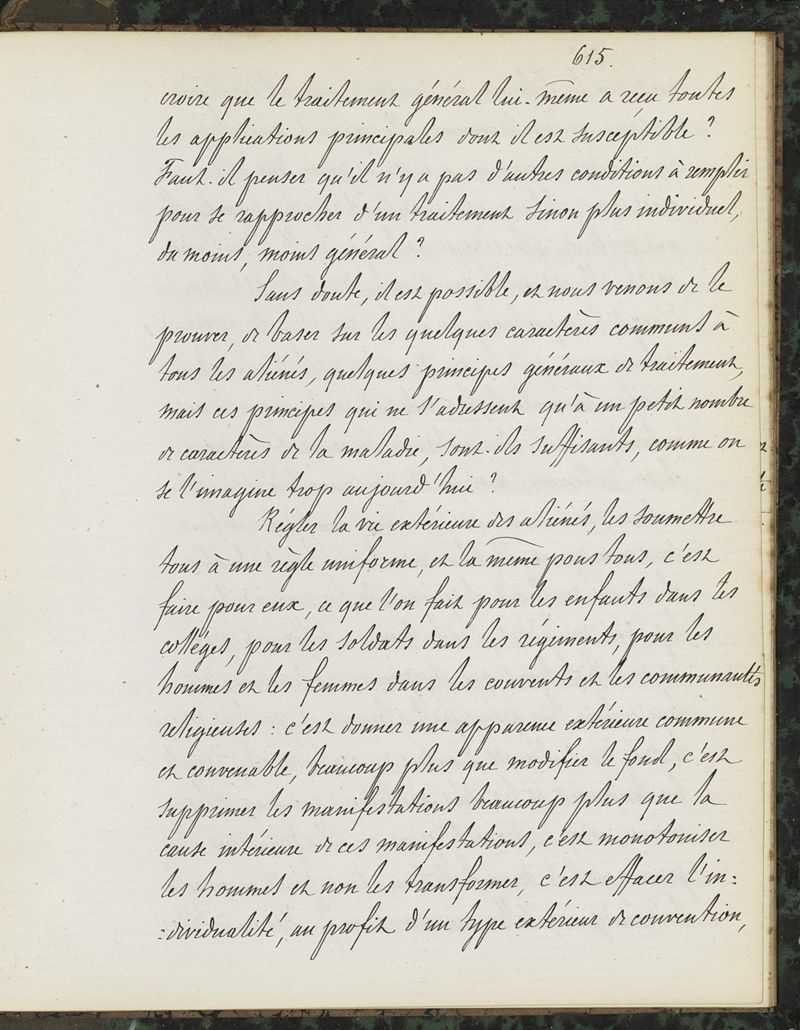 615.
croire que le traitement général lui-même a reçu toutes
les applications principales dont il est susceptible ?
Faut-il penser qu'il n'y a pas d'autres conditions à remplir
pour se rapprocher d'un traitement sinon plus individuel,
du moins, moins général ?
Sans doute, il est possible, et nous venons de le
prouver, de baser sur les quelques caractères communs à
tous les aliénés, quelques principes généraux de traitement,
mais ces principes qui ne s'adressent qu'à un petit nombre
de caractères de la maladie, sont-ils suffisants, comme on
se l'imagine trop aujourd'hui ?
Régler la vie extérieure des aliénés, les soumettre
tous à une règle uniforme, et la même pour tous, c'est
faire pour eux, ce que l'on fait pour les enfants dans les
colléges, pour les soldats dans les régiments, pour les
hommes et les femmes dans les couvents et les communautés
religieuses : c'est donner une apparence extérieure commune
et convenable, beaucoup plus que modifier le fond, c'est
supprimer les manifestations beaucoup plus que la
cause intérieure de ces manifestations, c'est monotoniser
les hommes et non les transformer, c'est effacer l'in=
=dividualité, au profit d'un type extérieur de convention,